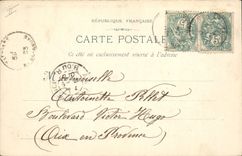 RÉPUBLIQUE FRANÇAISE
CARTE POSTALE
Ce côté est exclusivement réservé à l'adresse
Mademoiselle
Antoinette Pellet
Boulevard Victor Hugo
Aix en Provence